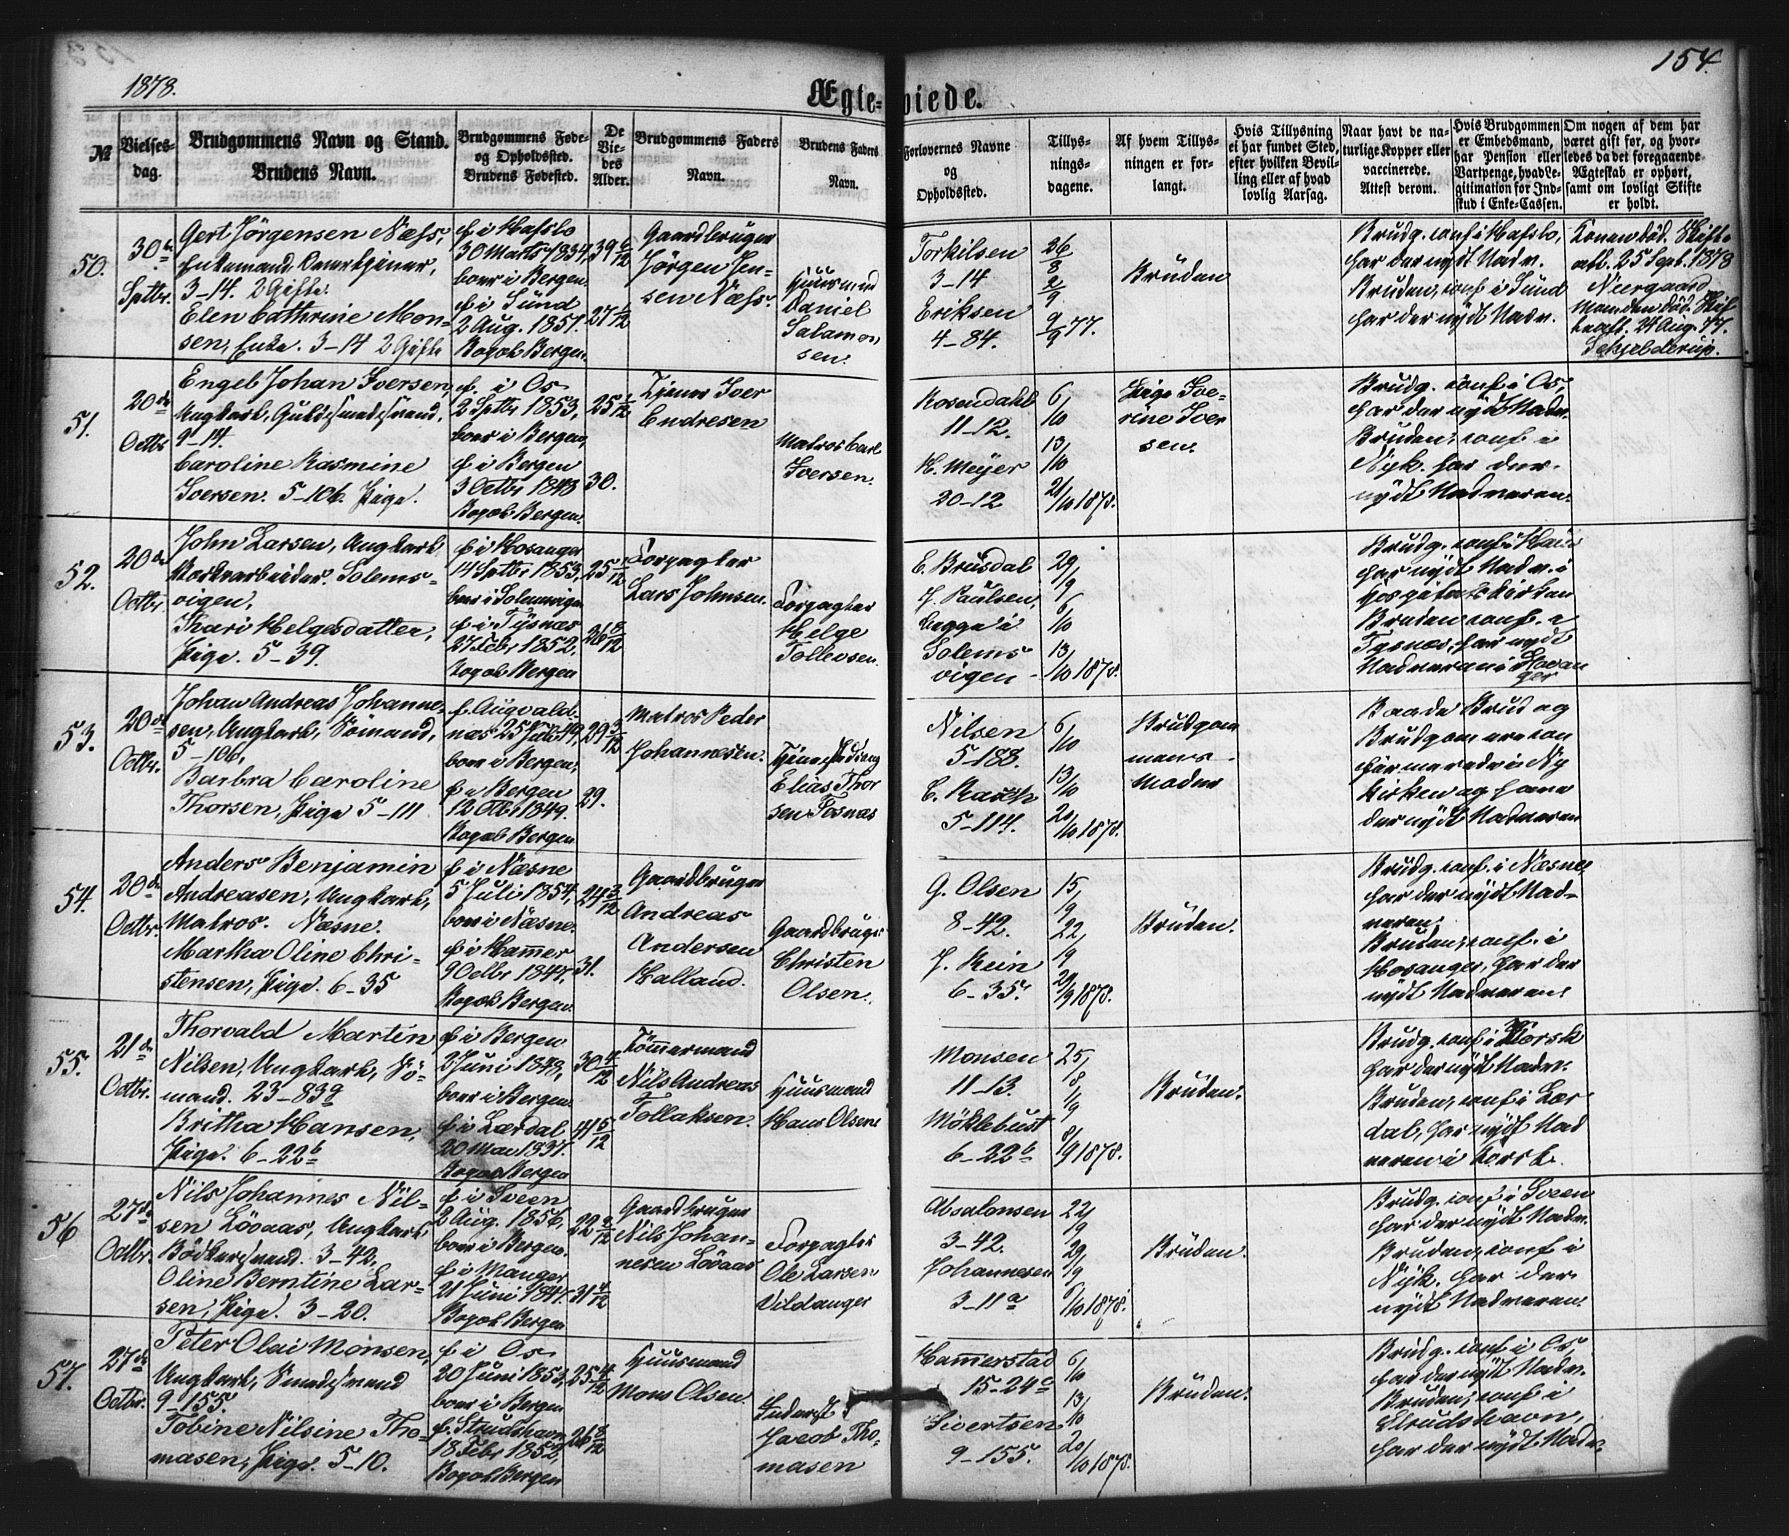 1878.
Ægte-viede.
154.
№
Vielses-
dag.
Brudgommens Navn og Stand.
Brudens Navn.
Brudgommens Føde-
og Opholdssted.
Brudens Fødested.
De
Vie-
des
Alder.
Brudgommens Faders
Navn.
Brudens Faders
Navn.
Forlovernes Navne
og
Opholdssted.
Tillys-
nings-
dagene.
Af hvem Tillys-
ningen er for-
langt.
Hvis Tillysning
ei har fundet Sted,
efter hvilken Bevil-
ling eller af hvad
lovlig Aarsag.
Naar havt de na-
turlige Kopper eller
vaccinerede.
Attest derom.
Hvis Brudgommen
er Embedsmand,
har Pension eller
Vartpenge, hvad Le-
gitimation for Ind-
skud i Enke-Cassen.
Om nogen af dem har
været gift for, og hvor-
ledes da det foregaaende
Ægteskab er ophørt,
samt om lovligt Skifte
er holdt.
50.
30te
Septbr.
Gert Jörgensen Næss,
Enkemand,
3-14. 2 Gifte
Elen Cathrine Mon-
sen, Enke. 3-14 2 Gifte
f. i Hafslo
30 Marts 1834,
boer i Bergen.
f. i Sund
2 Aug. 1851.
Bopæl Bergen.
39 6/12
27 1/12
Gaardbruger
Jörgen Jen-
sen Næss.
Huusmand
Daniel
Salamon-
sen.
Torkilsen
3-14
Eriksen
4-84.
26/8
2/9
9/9 77.
Bruden
Brudg. conf. i Hafslo,
har der nydt Nadv.
Bruden, conf. i Sund
har der nydt Nadv.
Konen död. Skifte
att. 25 Sept. 1878
Neergaard
Manden död. Skif-
teatt. 24 Aug. 77.
51.
20de
Octbr
Engel Johan Iversen,
Ungkarl, Guldsmedsvend,
9-14.
Caroline Rasmine
Iversen. 5-106. Pige.
f. i Os
2 Septbr 1853,
boer i Bergen,
f. i Bergen
3 Octbr 1848
Bopæl Bergen.
25 1/12
30.
Tjener Iver
Endresen
Matros Carl
Iversen.
Rosendahl
11-12.
H. Meyer
20-12
6/10
13/10
21/10 1878.
Pige Ive-
rine Iver
sen.
Brudg. conf. i Os,
har der nydt Nadv.
Bruden, conf. i
Nyk. har der
nydt Nadveren.
52.
20de
Octbr.
John Larsen, Ungkarl
Værksarbeider. Solems-
vigen,
Thari Helgesdatter,
Pige. 5-39.
f. i Hosanger
14 Septbr 1853,
boer i Solemsvigen
f. i Tysnæs
27 Febr 1852.
Bopæl Bergen
25 1/12
26 8/12
Forpagter
Lars Johnsen.
Forpagter
Helge
Tollevsen.
E. Brusdal
J. Paulsen,
begge i
Solems
vigen -
29/9
6/10
13/10 1878.
Brudg. conf. i Haus
har nydt Nadv. i
Hospitalskirken
Bruden conf. i
Tysnæs, har nydt
Nadveren i Hosan
ger
53.
20de
Octbr.
Johan Andreas Johanne-
sen, Ungkarl, Sömand,
5-106,
Barbra Caroline
Thorsen, Pige 5-111
f. Augvald-
næs 25 Juli 49,
boer i Bergen,
f. i Bergen
12 Octb 1849.
Bopæl Bergen
29 3/12
29.
Matros Peder
Johannesen.
Elias Thor
sen Tosnæs
Nilsen
5-188.
C. Rasch
5-114.
6/10
13/10
20/10 1878.
Brudgom
mens
Moder
Baade Brud og
Brudgom ere con
firmerede i Ny
Kirken og have
der nydt Nadveren
54.
20de
Octbr.
Anders Benjamin
Andreasen, Ungkarl,
Matros. Næsne.
Martha Oline Chri-
stensen, Pige. 6-35
f. i Næsne
5 Juli 1854,
boer i Næsne.
f. i Hammer
9 Octbr 1847,
Bopæl Bergen.
24 3/12
31.
Gaardbruger
Andreas
Andersen
Halland.
Gaardbruger
Christen
Olsen.
G. Olsen
8-42.
J. Rein
6-35.
15/9
22/9
29/9 1878.
Bruden.
Brudg. conf. i Næsne
har der nydt Nad-
veren.
Bruden, conf. i
Hosanger, har der
nydt Nadveren.
55.
21de
Octbr.
Thorvald Martin
Nilsen, Ungkarl, Sö-
mand. 23-83g
Britha Hansen,
Pige. 6-22b
f. i Bergen
2 Juni 1848,
boer i Bergen.
f. i Lærdal
20 Mai 1837.
Bopæl Bergen
30 4/12
41 5/12
Tömmermand
Nils Andreas
Tollaksen.
Huusmand
Hans Olsen
Monsen
11-13.
Möklebust
6-22b
25/8
1/9
8/9 1878.
Bruden.
Brudg. conf. i Korsk
har der nydt Nadv.
Bruden, conf. i Lær
dal, har nydt Nad
veren i Korsk.
56
27de
Octbr.
Nils Johannes Nil-
sen Lövaas, Ungkarl,
Bödkersvend. 3-42.
Oline Berntine Lar-
sen, Pige. 3-20.
f. i Sveen
2 Aug. 1856,
boer i Bergen.
f. i Manger
21 Juni 1847.
Bopæl Bergen
22 2/12
31 4/12
Gaardbruger
Nils Johan-
nesen Lövaas
Forpagter
Ole Larsen
Vildanger
Absalonsen
3-42.
Johannesen
3-11a
22/9
29/9
6/10 1878.
Bruden.
Brudg. conf. i Sveen
har der nydt Nadv.
Bruden, conf. i
Nyk. har der
nydt Nadveren.
57.
27de
Octbr.
Peter Olai Monsen,
Ungkarl, Smedesvend
9-155.
Tobine Nilsine Tho-
masen, Pige. 5-10.
f. i Os
20 Juni 1853,
boer i Bergen
f. Strudshavn
18 Febr 1852,
Bopæl Bergen
25 4/12
26 8/12
Huusmand
Mons Olsen.
Inderst
Jacob Tho-
masen
Hammerstad
15-24c
Sivertsen
9-155.
6/10
13/10
20/10 1878.
Bruden.
Brudg. conf. i Os,
har der nydt Nadv.
Bruden, conf. i
Strudshavn,
har der nydt Nadv.